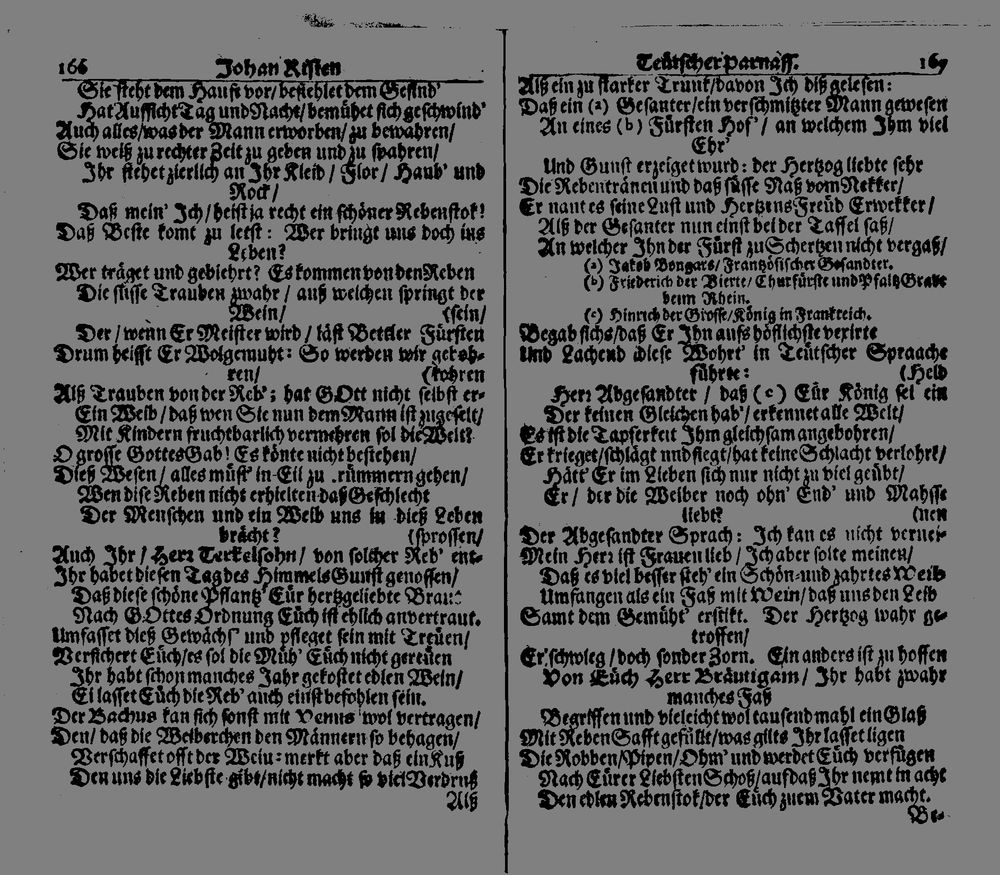 166 Johan Risten
Sie steht dem Hause vor/ befiehlet dem Gesind'
Hat Auffsicht Tag und Nacht/ bemühet sich geschwind'
Auch alles/ was der Mann erworben/ zu bewahren/
Sie weiß zu rechter Zeit zu geben und zu spahren/
Ihr stehet zierlich an Ihr Kleid/ Flor/ Haub' und
Rock/
Daß mein' Ich/ heist ja recht ein schöner Rebenstok!
Daß Beste komt zu letst: Wer bringt uns doch ins
Leben?
Wer träget und gebiehrt? Es kommen von den Reben
Die süsse Trauben zwahr/ auß welchen springt der
Wein/ (sein/
Der/ wenn Er Meister wird/ läst Bettler Fürsten
Drum heisst Er Wolgemuht: So werden wir gebohren/
ren/ (kohren
Alß Trauben von der Reb'; hat GOtt nicht selbst er-
Ein Weib/ daß wen Sie nun dem Mann ist zugeselt/
Mit Kindern fruchtbarlich vermehren sol die Welt?
O grosse Gottes Gab! Es könte nicht bestehen/
Dieß Wesen/ alles müst' in Eil zu trümmern gehen/
Wen dise Reben nicht erhielten daß Geschlecht
Der Menschen und ein Weib uns in dieß Leben
brächt? (sprossen/
Auch Ihr/ Herr Terkelsohn/ von solcher Reb' ent-
Ihr habet diesen Tag des Himmels Gunst genossen/
Daß diese schöne Pflantz' Eür hertzgeliebte Braut
Nach GOttes Ordnung Eüch ist ehlich anvertraut.
Umfasset dieß Gewächs' und pfleget sein mit Treüen/
Versichert Eüch/ es sol die Müh' Eüch nicht gereüen
Ihr habt schon manches Jahr gekostet edlen Wein/
Ei lasset Eüch die Reb' auch einst befohlen sein.
Der Bachus kan sich sonst mit Venus wol vertragen/
Den/ daß die Weiberchen den Männern so behagen/
Verschaffet offt der Wein: merkt aber daß ein Kuß
Den uns die Liebste gibt/ nicht macht so viel Verdruß
Alß
Teütscher Parnass. 167
Alß ein zu starker Trunk/ davon Ich diß gelesen:
Daß ein (a) Gesanter/ ein verschmitzter Mann gewesen
An eines (b) Fürsten Hof'/ an welchem Ihm viel
Ehr'
Und Gunst erzeiget wurd: der Hertzog liebte sehr
Die Rebentränen und daß süsse Naß vom Nekker/
Er nant es seine Lust und Hertzens Freüd Erwekker/
Alß der Gesanter nun einst bei der Taffel saß/
An welcher Ihn der Fürst zu Schertzen nicht vergaß/
(a) Jakob Bongars/ Frantzösischer Gesandter.
(b) Friederich der Vierte/ Churfürste und Pfaltz Grave
beim Rhein.
(c) Hinrich der Grosse/ König in Frankreich.
Begab sichs/ daß Er Ihn aufs höflichste vexirte
Und Lachend diese Wohrt' in Teütscher Spraache
führte: (Held
Herr Abgesandter/ daß (c) Eür König sei ein
Der keinen Gleichen hab'/ erkennet alle Welt/
Es ist die Tapferkeit Ihm gleichsam angebohren/
Er krieget/ schlägt und siegt/ hat keine Schlacht verlohrt/
Hätt' Er im Lieben sich nur nicht zu viel geübt/
Er/ der die Weiber noch ohn' End' und Mahsse
liebt? (nen
Der Abgesandter Sprach: Ich kan es nicht vernei-
Mein Herr ist Frauen lieb/ Ich aber solte meinen/
Daß es viel besser steh' ein Schön- und zahrtes Weib
Umfangen als ein Faß mit Wein/ daß uns den Leib
Samt dem Gemüht' erstikt. Der Hertzog wahr ge-
troffen/
Er schwieg/ doch sonder Zorn. Ein anders ist zu hoffen
Von Eüch Herr Bräutigam/ Ihr habt zwahr
manches Faß
Begriffen und vieleicht wol tausend mahl ein Glaß
Mit Reben Safft gefüllt/ was gilts Ihr lasset ligen
Die Robben/ Pipen/ Ohm' und werdet Eüch verfügen
Nach Eürer Liebsten Schoß/ auf daß Ihr nemt in acht
Den edlen Rebenstok/ der Eüch zuem Vater macht.
Be-